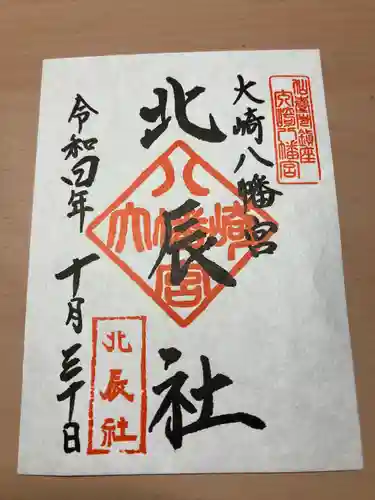 仙臺市鎮座
大崎八幡宮
大崎八幡宮
北辰社
八幡宮
大崎
北辰社
令和四年十月三十日